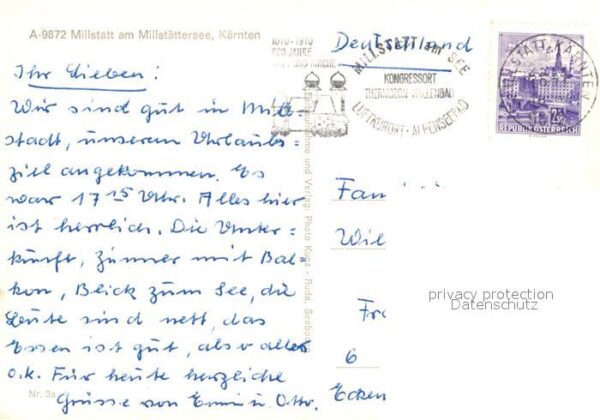 A-9872 Millstatt am Millstättersee, Kärnten
Ihr Lieben!
Wir sind gut in Mill-
stadt, unserem Urlaubs-
ziel angekommen. Es
war 17 15 Uhr. Alles hier
ist herrlich. Die Unter-
kunft, Zimmer mit Bal-
kon, Blick zum See, die
Leute sind nett, das
Essen ist gut, also alles
o.k. Für heute herzliche
Grüsse von Erni u. Otto.
Nr. 3a
und Verlag Photo Kunz - Ruda, Seeboden
1070-1970
900 JAHRE
MILLSTATT am SEE
KONGRESSORT
THERMODROM HALLENBAD
LUFTKURORT - ALPENSEEBAD
Deutschland
REPUBLIK ÖSTERREICH
Fam
Wil
Fr
6
Ecken
privacy protection
Datenschutz